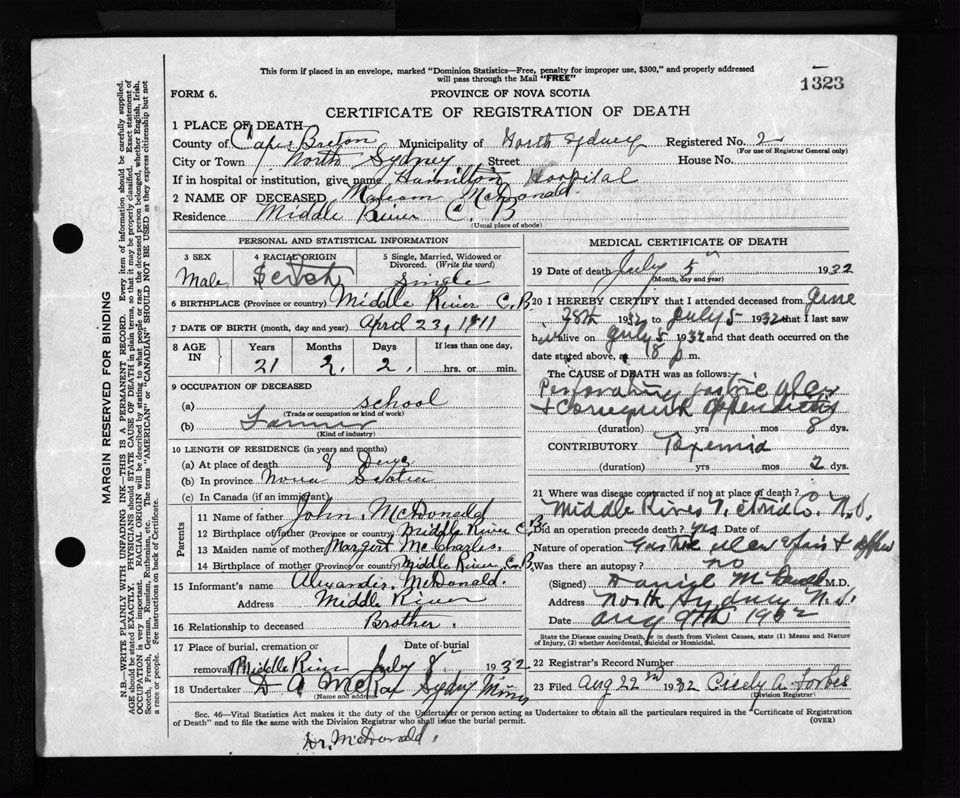 This form if placed in an envelope, marked "Dominion Statistics—Free, penalty for improper use, $300," and properly addressed
will pass through the Mail "FREE"
1323
FORM 6.
PROVINCE OF NOVA SCOTIA
CERTIFICATE OF REGISTRATION OF DEATH
1 PLACE OF DEATH
County of Cape Breton Municipality of North Sydney Registered No. 2
(For use of Registrar General only)
City or Town North Sydney Street House No.
If in hospital or institution, give name Hamilton Hospital
2 NAME OF DECEASED McDonald
Residence Middle River C. B
(Usual place of abode)
PERSONAL AND STATISTICAL INFORMATION
3 SEX
Male
4 RACIAL ORIGIN
Scotch
5 Single, Married, Widowed or
Divorced. (Write the word)
Single
6 BIRTHPLACE (Province or country) Middle River C.B.
7 DATE OF BIRTH (month, day and year) April 23, 1911
8 AGE IN
Years Months Days If less than one day,
21 2 2. hrs. or min.
9 OCCUPATION OF DECEASED
(a) school
(Trade or occupation or kind of work)
(b) Farmer
(Kind of industry)
10 LENGTH OF RESIDENCE (in years and months)
(a) At place of death 8 Days
(b) In province Nova Scotia
(c) In Canada (if an immigrant)
Parents
11 Name of father John McDonald
12 Birthplace of father (Province or country) Middle River C.B.
13 Maiden name of mother Margert McCharles.
14 Birthplace of mother (Province or country) Middle River C.B.
15 Informant's name Alexander McDonald.
Address Middle River
16 Relationship to deceased Brother.
17 Place of burial, cremation or Date of burial
removal Middle River July 8 1932
18 Undertaker D A McRae Sydney Mines
(Name and address)
MEDICAL CERTIFICATE OF DEATH
19 Date of death July 5" 1932
(Month, day and year)
20 I HEREBY CERTIFY that I attended deceased from June
28th 1932 to July 5 1932 that I last saw
him alive on July 5 1932 and that death occurred on the
date stated above, at 8 p m.
The CAUSE of DEATH was as follows:
Perforating gastric ulcer
+ appendicitis
(duration) yrs mos 8 dys.
CONTRIBUTORY Toxemia
(duration) yrs mos 2 dys.
21 Where was disease contracted if not at place of death?
Middle River Victoria Co. N.S.
Did an operation precede death? Yes Date of
Nature of operation Gastric ulcer +
Was there an autopsy? no
(Signed) Daniel McDonald M.D.
Address North Sydney N.S.
Date Aug 9th 1932
State the Disease causing Death, or in death from Violent Causes, state (1) Means and Nature
of Injury, (2) whether Accidental, Suicidal or Homicidal.
22 Registrar's Record Number
23 Filed Aug 22nd 1932 Cicely A. Forbes
(Division Registrar)
Sec. 46—Vital Statistics Act makes it the duty of the Undertaker or person acting as Undertaker to obtain all the particulars required in the "Certificate of Registration
of Death" and to file the same with the Division Registrar who shall issue the burial permit.
(OVER)
Dr. McDonald.
MARGIN RESERVED FOR BINDING
N.B.—WRITE PLAINLY WITH UNFADING INK—THIS IS A PERMANENT RECORD. Every item of information should be carefully supplied.
AGE should be stated EXACTLY. PHYSICIANS should STATE CAUSE OF DEATH in plain terms, so that it may be properly classified. Exact statement of
OCCUPATION is very important. RACIAL ORIGIN will be described by stating to what people or race the deceased person belonged, whether English, Irish,
Scotch, French, German, Russian, Ruthenian, etc. The terms "AMERICAN" or "CANADIAN" SHOULD NOT BE USED as they express citizenship but not
a race or people. See instructions on back of Certificate.